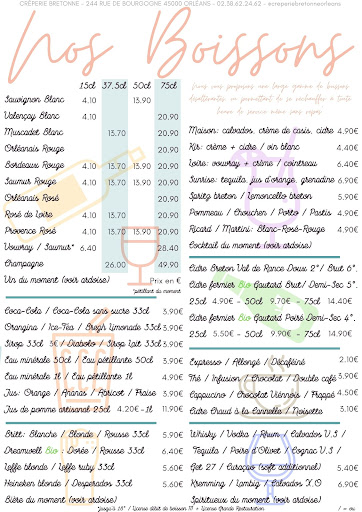 CRÊPERIE BRETONNE - 244 RUE DE BOURGOGNE 45000 ORLÉANS - 02.38.62.24.62 - #creperiebretonneorleans
Nos Boissons
15cl 37,5cl 50cl 75cl
Sauvignon Blanc 4.10 13.90
Valençay Blanc 4.10 20.90
Muscadet Blanc 13.70 20.90
Orléanais Rouge 20.90
Bordeaux Rouge 4.10 13.70 13.90 20.90
Saumur Rouge 4.10 13.70 13.90 20.90
Orléanais Rosé 20.90
Rosé de Loire 4.10 13.70 20.90
Provence Rosé 4.10 13.70 13.90 20.90
Vouvray / Saumur* 6.40 28.40
Champagne 26.00 49.90
Vin du moment (voir ardoise) Prix en €
*pétillant du moment
Coca-Cola / Coca-Cola sans sucre 33cl 3.90€
Orangina / Ice-Tea / Breizh Limonade 33cl 3.90€
Sirop 33cl 3€ / Diabolo / Sirop 1pit 33cl 3.90€
Eau minérale 50cl / Eau pétillante 50cl 3.90€
Eau minérale 1l / Eau pétillante 1l 4.90€
Jus: Orange / Ananas / Abricot / Fraise 3.90€
Jus de pomme artisanal 25cl 4.20€ - 1l 11.90€
Britt: Blanche / Blonde / Rousse 33cl 5.90€
Dreamwell Bio : Dorée / Rousse 33cl 6.40€
Leffe blonde / Leffe ruby 33cl 5.60€
Heineken blonde / Desperados 33cl 5.60€
Bière du moment (voir ardoise)
Nous vous proposons une large gamme de boissons
désaltérantes ou permettant de se réchauffer à toute
heure du service même sans repas
Maison: calvados, crème de cassis, cidre 4.90€
Kir: crème + cidre / vin blanc 4,40€
Loire: vouvray + crème / cointreau 6,40€
Sunrise: tequila, jus d'orange, grenadine 6.90€
Spritz breton / Limoncello breton 5.90€
Pommeau / Chouchen / Porto / Pastis 4.90€
Ricard / Martini: Blanc-Rosé-Rouge 4.90€
Cocktail du moment (voir ardoise)
Cidre Breton Val de Rance Doux 2°/ Brut 6°.
Cidre fermier Bio Coutard Brut / Demi-Sec 5°.
25cl 4.90€ - 50cl 9.70€ - 75cl 14.40€
Cidre fermier Bio Coutard Poiré Demi-Sec 4°.
25cl 5.50€ - 50cl 9.90€ - 75cl 14.90€
Expresso / Allongé / Décaféiné 2.10€
Thé / Infusion / Chocolat / Double café 3.90€
Cappucino / Chocolat Viennois / Frappé 4.50€
Cidre Chaud à la Cannelle / Noisette 3.10€
Whisky / Vodka / Rhum / Calvados V.S /
Tequila / Poire d'Olivet / Cognac V.S / 5.40€
Get 27 / Curaçao (soft additionnel) 5.40€
Kremming / Lambig / Calvados X.O 6.90€
Spiritueux du moment (voir ardoise)
*jusqu'à 18° / License débit de boisson III + License Grande Restauration